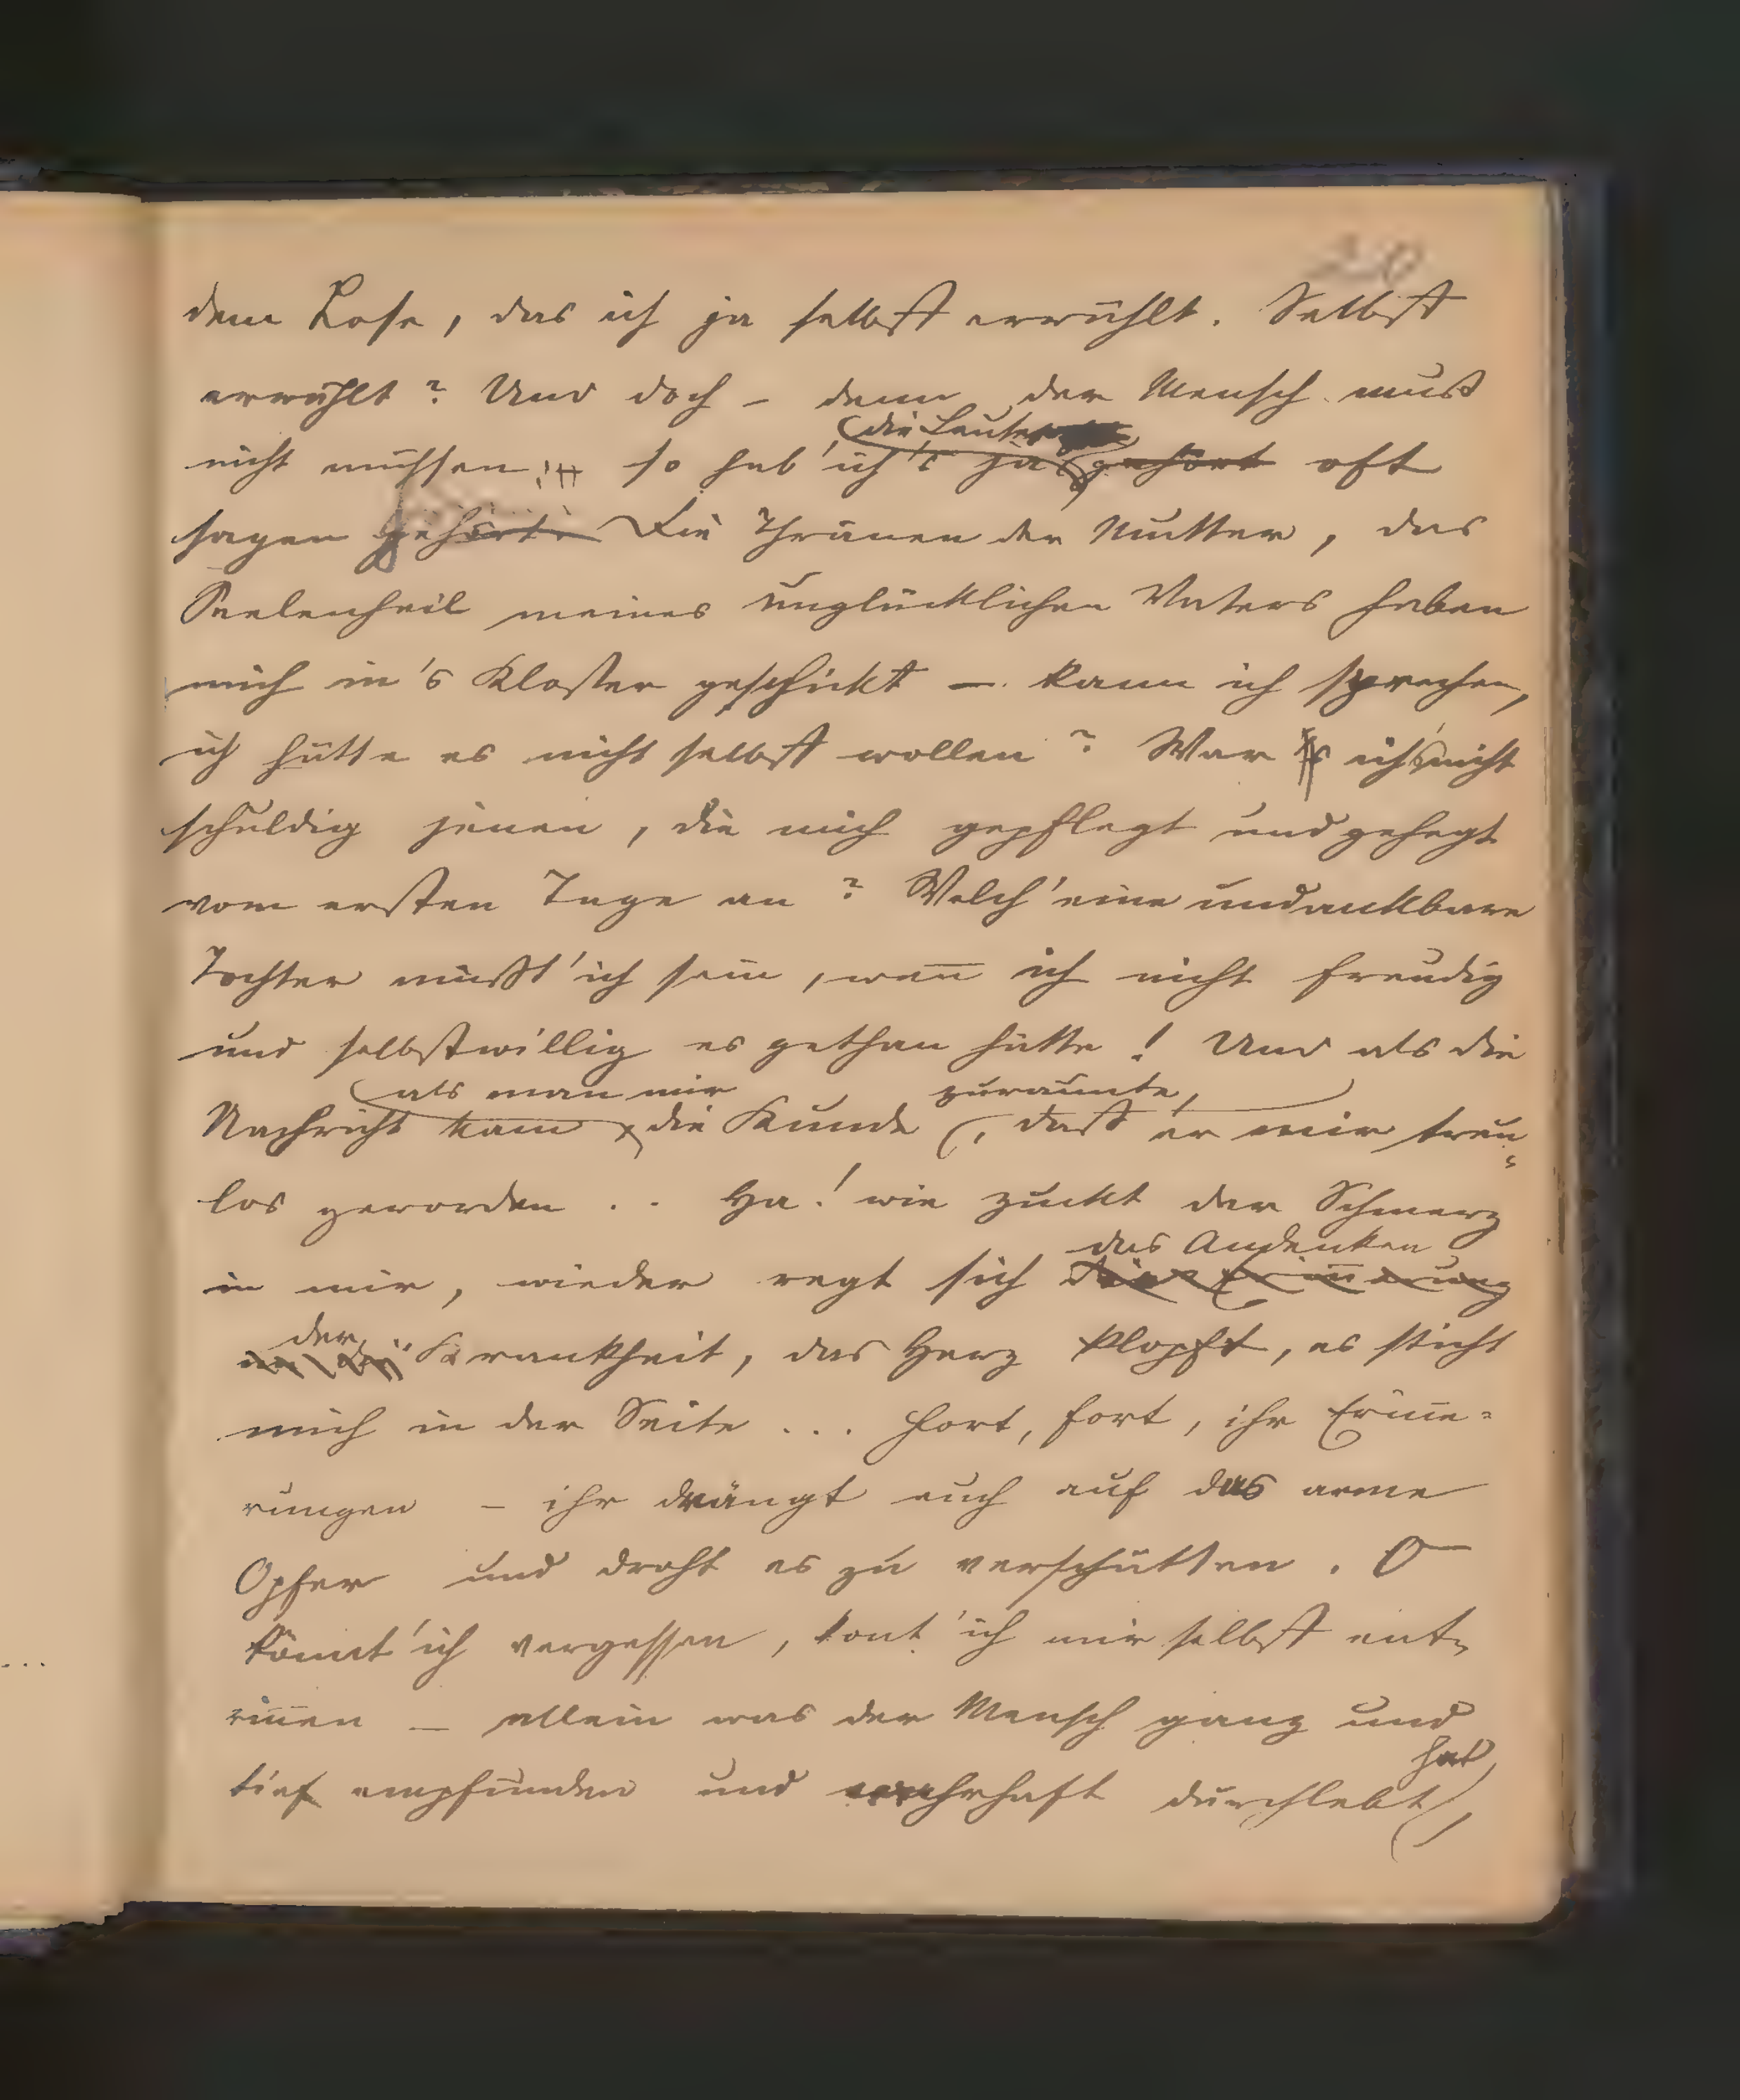 20
dem Lose, das ich ja selbst erwählt. Selbst
erwählt? Und doch – denn der Mensch muss
die Leute
nicht müssen, so hab' ich's ja gehört oft
sagen gehört. Die Thränen der Mutter, das
Seelenheil meines unglücklichen Vaters haben
mich in's Kloster geschickt – kann ich sprechen,
ich hätte es nicht selbst wollen? War ich's nicht
schuldig jenen, die mich gepflegt und gehegt
vom ersten Tage an? Welch' eine undankbare
Tochter müsst' ich sein, wen̄ ich nicht freudig
und selbstwillig es gethan hätte! Und als die
als man mir zuraunte,
Nachricht kam, die Kunde, dass er mir treu-
los geworden .. Ha! wie zuckt der Schmerz
das Andenken
in mir, wieder regt sich die Erin̄erung
der
an Krankheit, das Herz klopft, es sticht
mich in der Seite ... fort, fort, ihr Erin̄e=
rungen – ihr drängt euch auf das arme
Opfer und droht es zu verschütten. O
könnt' ich vergessen, könt' ich mir selbst ent-
rin̄en – allein was der Mensch ganz und
hat
tief empfunden und wahrhaft durchlebt,
...